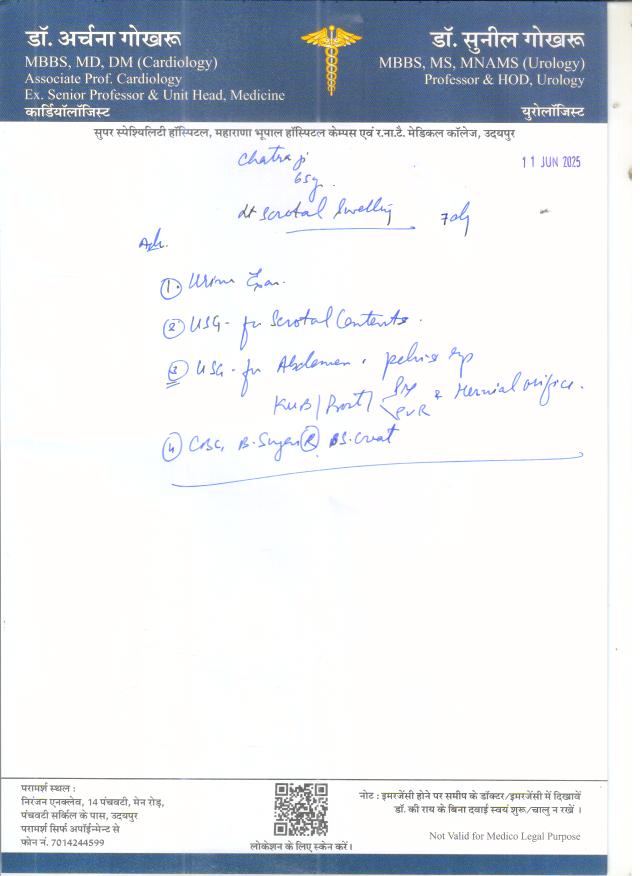 डॉ. अर्चना गोखरू
MBBS, MD, DM (Cardiology)
Associate Prof. Cardiology
Ex. Senior Professor & Unit Head, Medicine
कार्डियॉलॉजिस्ट
डॉ. सुनील गोखरू
MBBS, MS, MNAMS (Urology)
Professor & HOD, Urology
युरोलॉजिस्ट
सुपर स्पेश्यिलिटी हॉस्पिटल, महाराणा भूपाल हॉस्पिटल केम्पस एवं र.ना.टै. मेडिकल कॉलेज, उदयपुर
Chatra ji
11 JUN 2025
65y.
Scrotal Swelling
Adv.
① Urine Exam.
② USG - for Scrotal Contents.
③ USG - for Abdomen, pelvis
KUB/Prost/ PVR & Hernial orifice.
④ CBC, B. Sugar R, S. Creat
परामर्श स्थल :
निरंजन एनक्लेव, 14 पंचवटी, मेन रोड़,
पंचवटी सर्किल के पास, उदयपुर
परामर्श सिर्फ अपॉईन्मेन्ट से
फोन नं. 7014244599
लोकेशन के लिए स्केन करें।
नोट : इमरजेंसी होने पर समीप के डॉक्टर/इमरजेंसी में दिखावें
डॉ. की राय के बिना दवाई स्वयं शुरू/चालु न रखें ।
Not Valid for Medico Legal Purpose